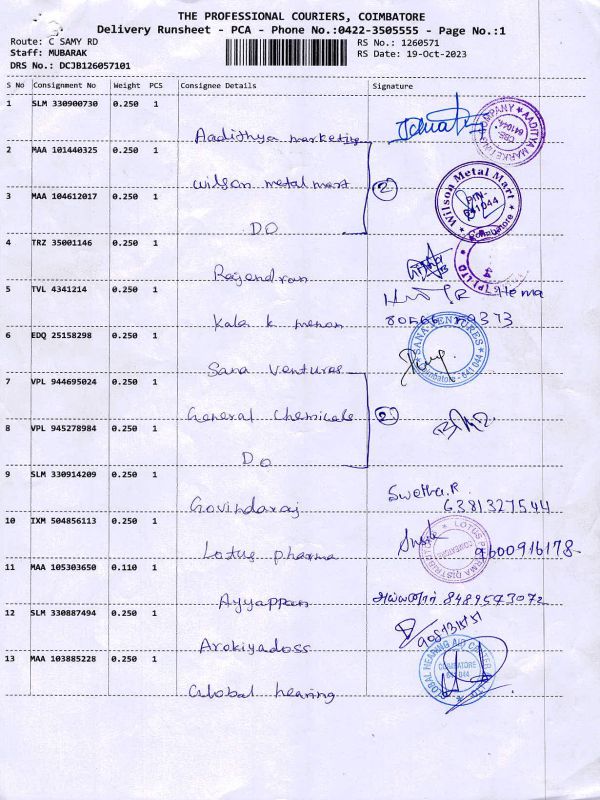 THE PROFESSIONAL COURIERS, COIMBATORE
Delivery Runsheet - PCA - Phone No.:0422-3505555 - Page No.:1
Route: C SAMY RD RS No.: 1260571
Staff: MUBARAK RS Date: 19-Oct-2023
DRS No.: DCJB126057101
S No Consignment No Weight PCS Consignee Details Signature
1 SLM 330900730 0.250 1
Aadithya marketing
2 MAA 101440325 0.250 1
Wilson metal mart 2
3 MAA 104612017 0.250 1
DO
Wilson Metal Mart
PIN-
641044
Coimbatore
4 TRZ 35001146 0.250 1
Rajendran
5 TVL 4341214 0.250 1
Hema
Kala k menon
6 EDQ 25158298 0.250 1
SANA VENTURES
Coimbatore - 641 044
Sana Ventures
7 VPL 944695024 0.250 1
General Chemicals 2
8 VPL 945278984 0.250 1
DO
9 SLM 330914209 0.250 1
Swetha.R
Govindaraj 6381327544
10 IXM 504856113 0.250 1
LOTUS PHARMA DISTRIBUTORS
Lotus pharma 9600916178
11 MAA 105303650 0.110 1
Ayyappan 8489573072
12 SLM 330887494 0.250 1
Arokiyadoss
13 MAA 103885228 0.250 1
GLOBAL HEARING AID CENTER
COIMBATORE
641 044
Global hearing